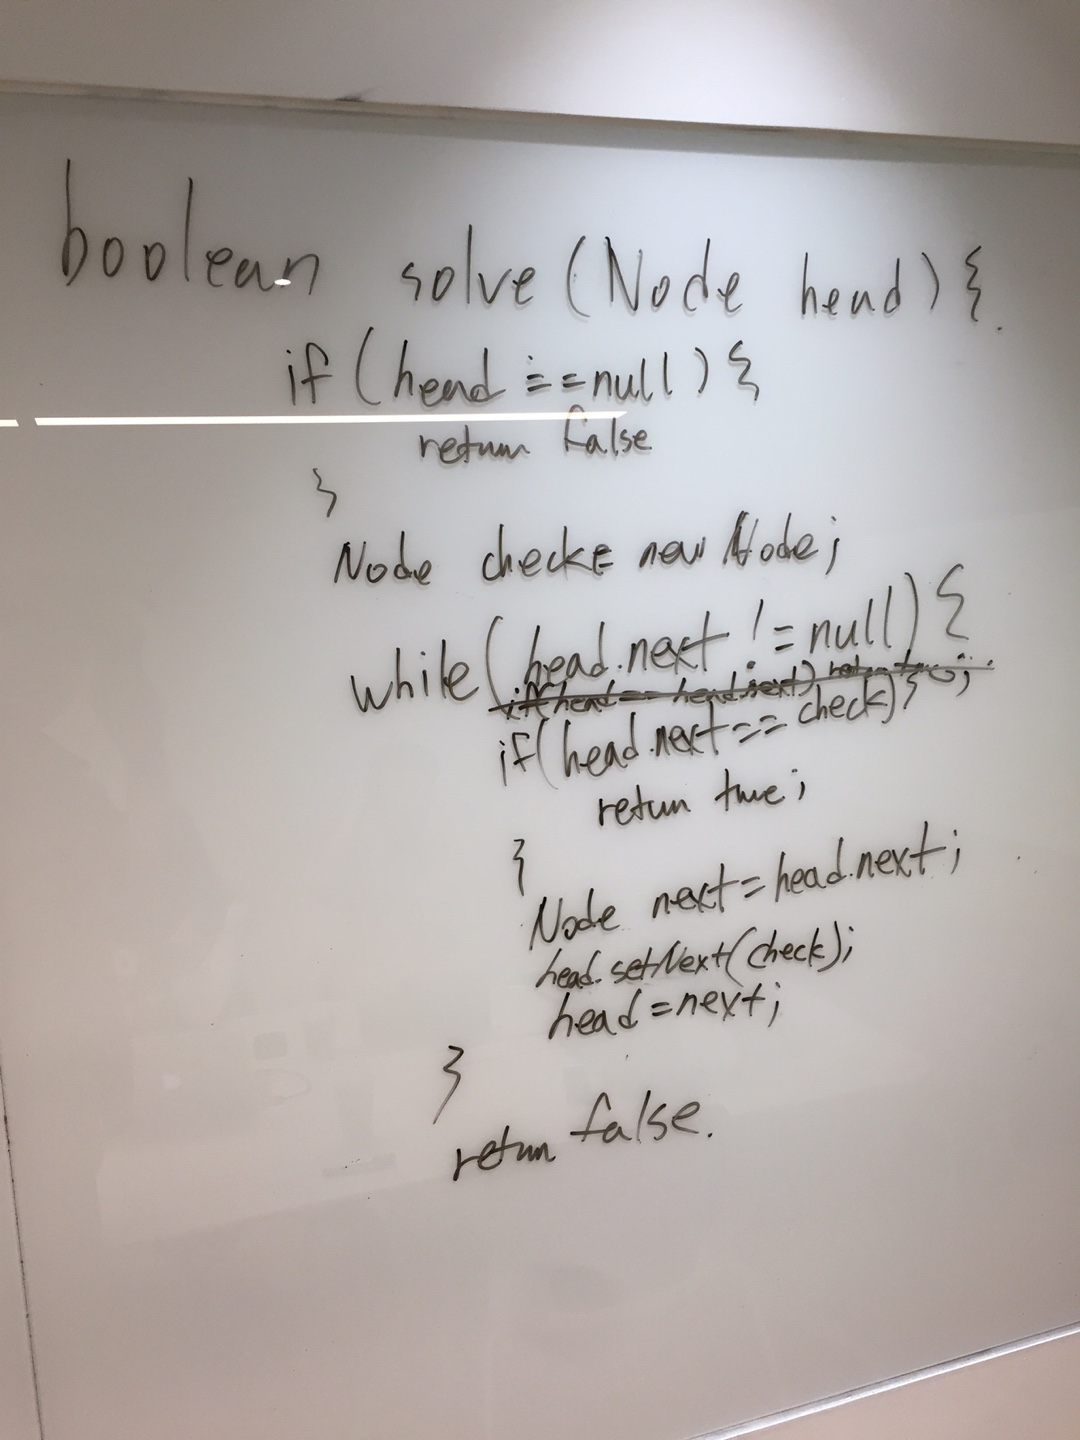 boolean solve(Node head){
if(head == null){
return false
}
Node check = new Node;
while(head.next != null){
if(head == head.next) return true;
if(head.next == check){
return true;
}
Node next = head.next;
head.setNext(check);
head = next;
}
return false.